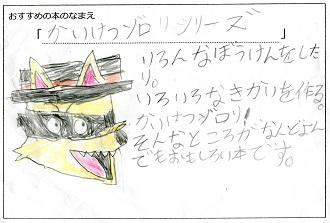 おすすめの本のなまえ
「かいけつゾロリシリーズ」
いろんなぼうけんをした
り。
いろいろなきかいを作る。
かいけつゾロリ!
そんなところがなんどよん
でもおもしろい本です。